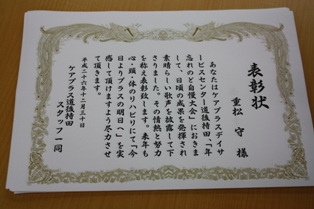 表彰状
重松 守 様
あなたはケアプラスデイサ
ービスセンター道後持田「年
忘れのど自慢大会」におきま
して、日頃の成果を発揮され
素晴らしい歌声を披露して下
さりました。その情熱と努力
を称え表彰致します。来年も
心・頭・体のリハビリにて「今
日よりプラスの明日へ」を実
感して頂けますよう尽力させ
て頂きます。
平成二十六年十二月三十日
ケアプラス道後持田
スタッフ一同